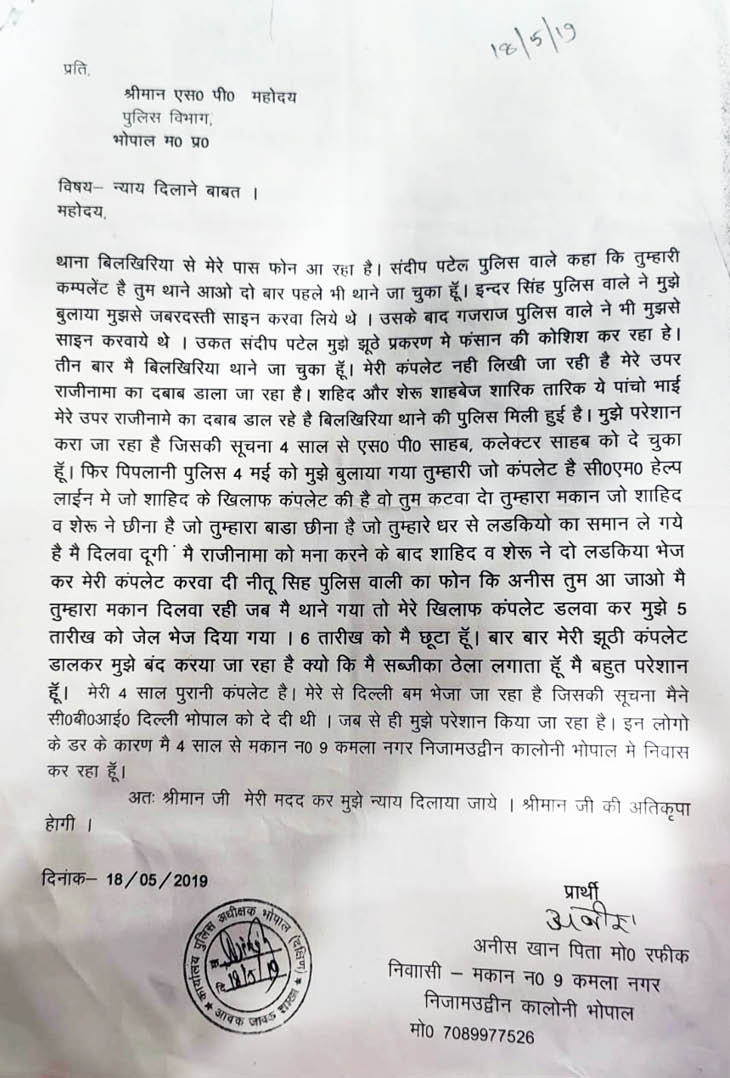 18/5/19
प्रति,
श्रीमान एस0 पी0 महोदय
पुलिस विभाग,
भोपाल म0 प्र0
विषय– न्याय दिलाने बाबत ।
महोदय,
थाना बिलखिरिया से मेरे पास फोन आ रहा है। संदीप पटेल पुलिस वाले कहा कि तुम्हारी
कम्पलेंट है तुम थाने आओ दो बार पहले भी थाने जा चुका हूँ। इन्दर सिंह पुलिस वाले ने मुझे
बुलाया मुझसे जबरदस्ती साइन करवा लिये थे । उसके बाद गजराज पुलिस वाले ने भी मुझसे
साइन करवाये थे । उकत संदीप पटेल मुझे झूठे प्रकरण मे फंसान की कोशिश कर रहा हे।
तीन बार मै बिलखिरिया थाने जा चुका हूँ। मेरी कंपलेट नही लिखी जा रही है मेरे उपर
राजीनामा का दबाब डाला जा रहा है। शहिद और शेरू शाहबेज शारिक तारिक ये पांचो भाई
मेरे उपर राजीनामे का दबाब डाल रहे है बिलखिरिया थाने की पुलिस मिली हुई है। मुझे परेशान
करा जा रहा है जिसकी सूचना 4 साल से एस0 पी0 साहब, कलेक्टर साहब को दे चुका
हूँ। फिर पिपलानी पुलिस 4 मई को मुझे बुलाया गया तुम्हारी जो कंपलेट है सी0एम0 हेल्प
लाईन मे जो शाहिद के खिलाफ कंपलेट की है वो तुम कटवा देा तुम्हारा मकान जो शाहिद
व शेरू ने छीना है जो तुम्हारा बाडा छीना है जो तुम्हारे धर से लडकियो का समान ले गये
है मै दिलवा दूगी मै राजीनामा को मना करने के बाद शाहिद व शेरू ने दो लडकिया भेज
कर मेरी कंपलेट करवा दी नीतू सिह पुलिस वाली का फोन कि अनीस तुम आ जाओ मै
तुम्हारा मकान दिलवा रही जब मै थाने गया तो मेरे खिलाफ कंपलेट डलवा कर मुझे 5
तारीख को जेल भेज दिया गया । 6 तारीख को मै छूटा हूँ। बार बार मेरी झूठी कंपलेट
डालकर मुझे बंद करया जा रहा है क्यो कि मै सब्जीका ठेला लगाता हूँ मै बहुत परेशान
हूँ। मेरी 4 साल पुरानी कंपलेट है। मेरे से दिल्ली बम भेजा जा रहा है जिसकी सूचना मैने
सी0बी0आई0 दिल्ली भोपाल को दे दी थी । जब से ही मुझे परेशान किया जा रहा है। इन लोगो
के डर के कारण मै 4 साल से मकान न0 9 कमला नगर निजामउद्वीन कालोनी भोपाल मे निवास
कर रहा हूँ।
अतः श्रीमान जी मेरी मदद कर मुझे न्याय दिलाया जाये । श्रीमान जी की अतिकृपा
हेागी ।
दिनांक– 18/05/2019
प्रार्थी
अनीस
अनीस खान पिता मो0 रफीक
निवाासी – मकान न0 9 कमला नगर
निजामउद्वीन कालोनी भोपाल
मो0 7089977526
कार्यालय पुलिस अधीक्षक भोपाल (दक्षिण)
दि. 18/5/19
आवक जावक शाखा